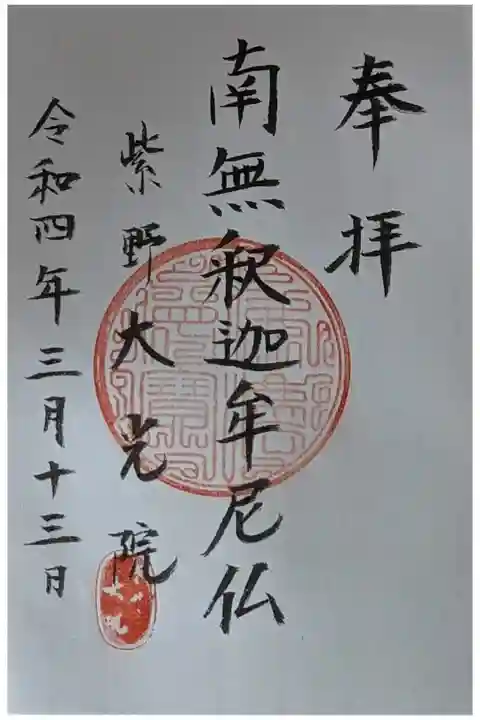 奉拝
南無釈迦牟尼仏
紫野大光院
令和四年三月十三日